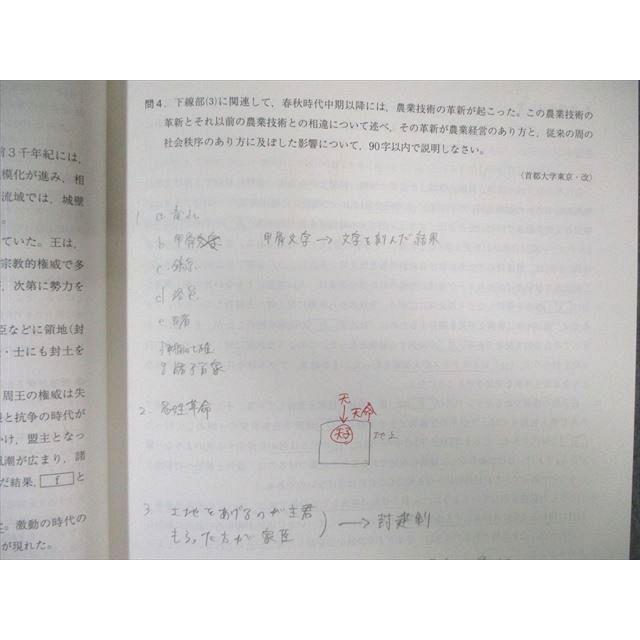 前3千年紀には,
模化が進み, 相
流域では, 城壁
。
ていた。王は,
宗教的権威で多
次第に勢力を
臣などに領地(封
・士にも封土を
周王の権威は失
と抗争の時代が
かけ, 盟主となっ
風潮が広まり, 諸
だ結果, f と
。激動の時代の
が現れた。
問4. 下線部(3)に関連して, 春秋時代中期以降には, 農業技術の革新が起こった。この農業技術の
革新とそれ以前の農業技術との相違について述べ, その革新が農業経営のあり方と, 従来の周の
社会秩序のあり方に及ぼした影響について, 90字以内で説明しなさい。
(首都大学東京・改)
1. a
b 甲骨 甲骨文字→文字を刻んだ結果
c
d
e
f 戦国の七雄
g 諸子百家
2. 易姓革命
天
天命
天子
地上
3. 土地をあげるのが主君
もらった方が家臣
→封建制